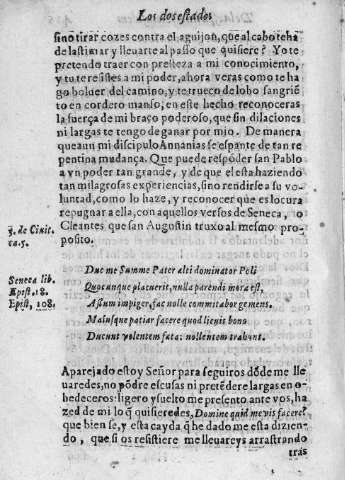 Los dos estados
sino tirar cozes contra el aguijon, que al cabo te ha
de lastimar y lleuarte al passo que quisiere? Yo te
pretendo traer con presteza a mi conocimiento,
y tu te resistes a mi poder, ahora veras como te ha
go boluer del camino, y te trueco de lobo sangriẽ
to en cordero manso, en este hecho reconoceras
la fuerça de mi braço poderoso, que sin dilaciones
ni largas te tengo de ganar por mio. De manera
que aun mi discipulo Annanias se espante de tan re
pentina mudança. Que puede respõder san Pablo
a vn poder tan grande, y de que el esta haziendo
tan milagrosas experiencias, sino rendirse a su vo-
luntad, como lo haze, y reconocer que es locura
repugnar a ella, con aquellos versos de Seneca, o
Cleantes que san Augustin truxo al mesmo pro-
posito.
5. de Ciuit.
ca. 5.
Seneca lib.
Epist. 18.
Epist. 108.
Duc me Summe Pater alti dominator Poli
Quocunque placuerit, nulla parendi mora est,
Assum impiger, fac nolle commitabor gemens.
Malusque patiar facere quod licuit bono
Ducunt volentem fata: nollentem trahunt.
Aparejado estoy Señor para seguiros dõde me lle
uaredes, no põdre escusas ni pretẽdere largas en o-
bedeceros: ligero y suelto me presento ante vos, ha
zed de mi lo q̃ quisieredes, Domine quid me vis facere?
que bien se, y esta cayda q̃ he dado me esta dizien-
do, que si os resistiere me lleuareys arrastrando
tras